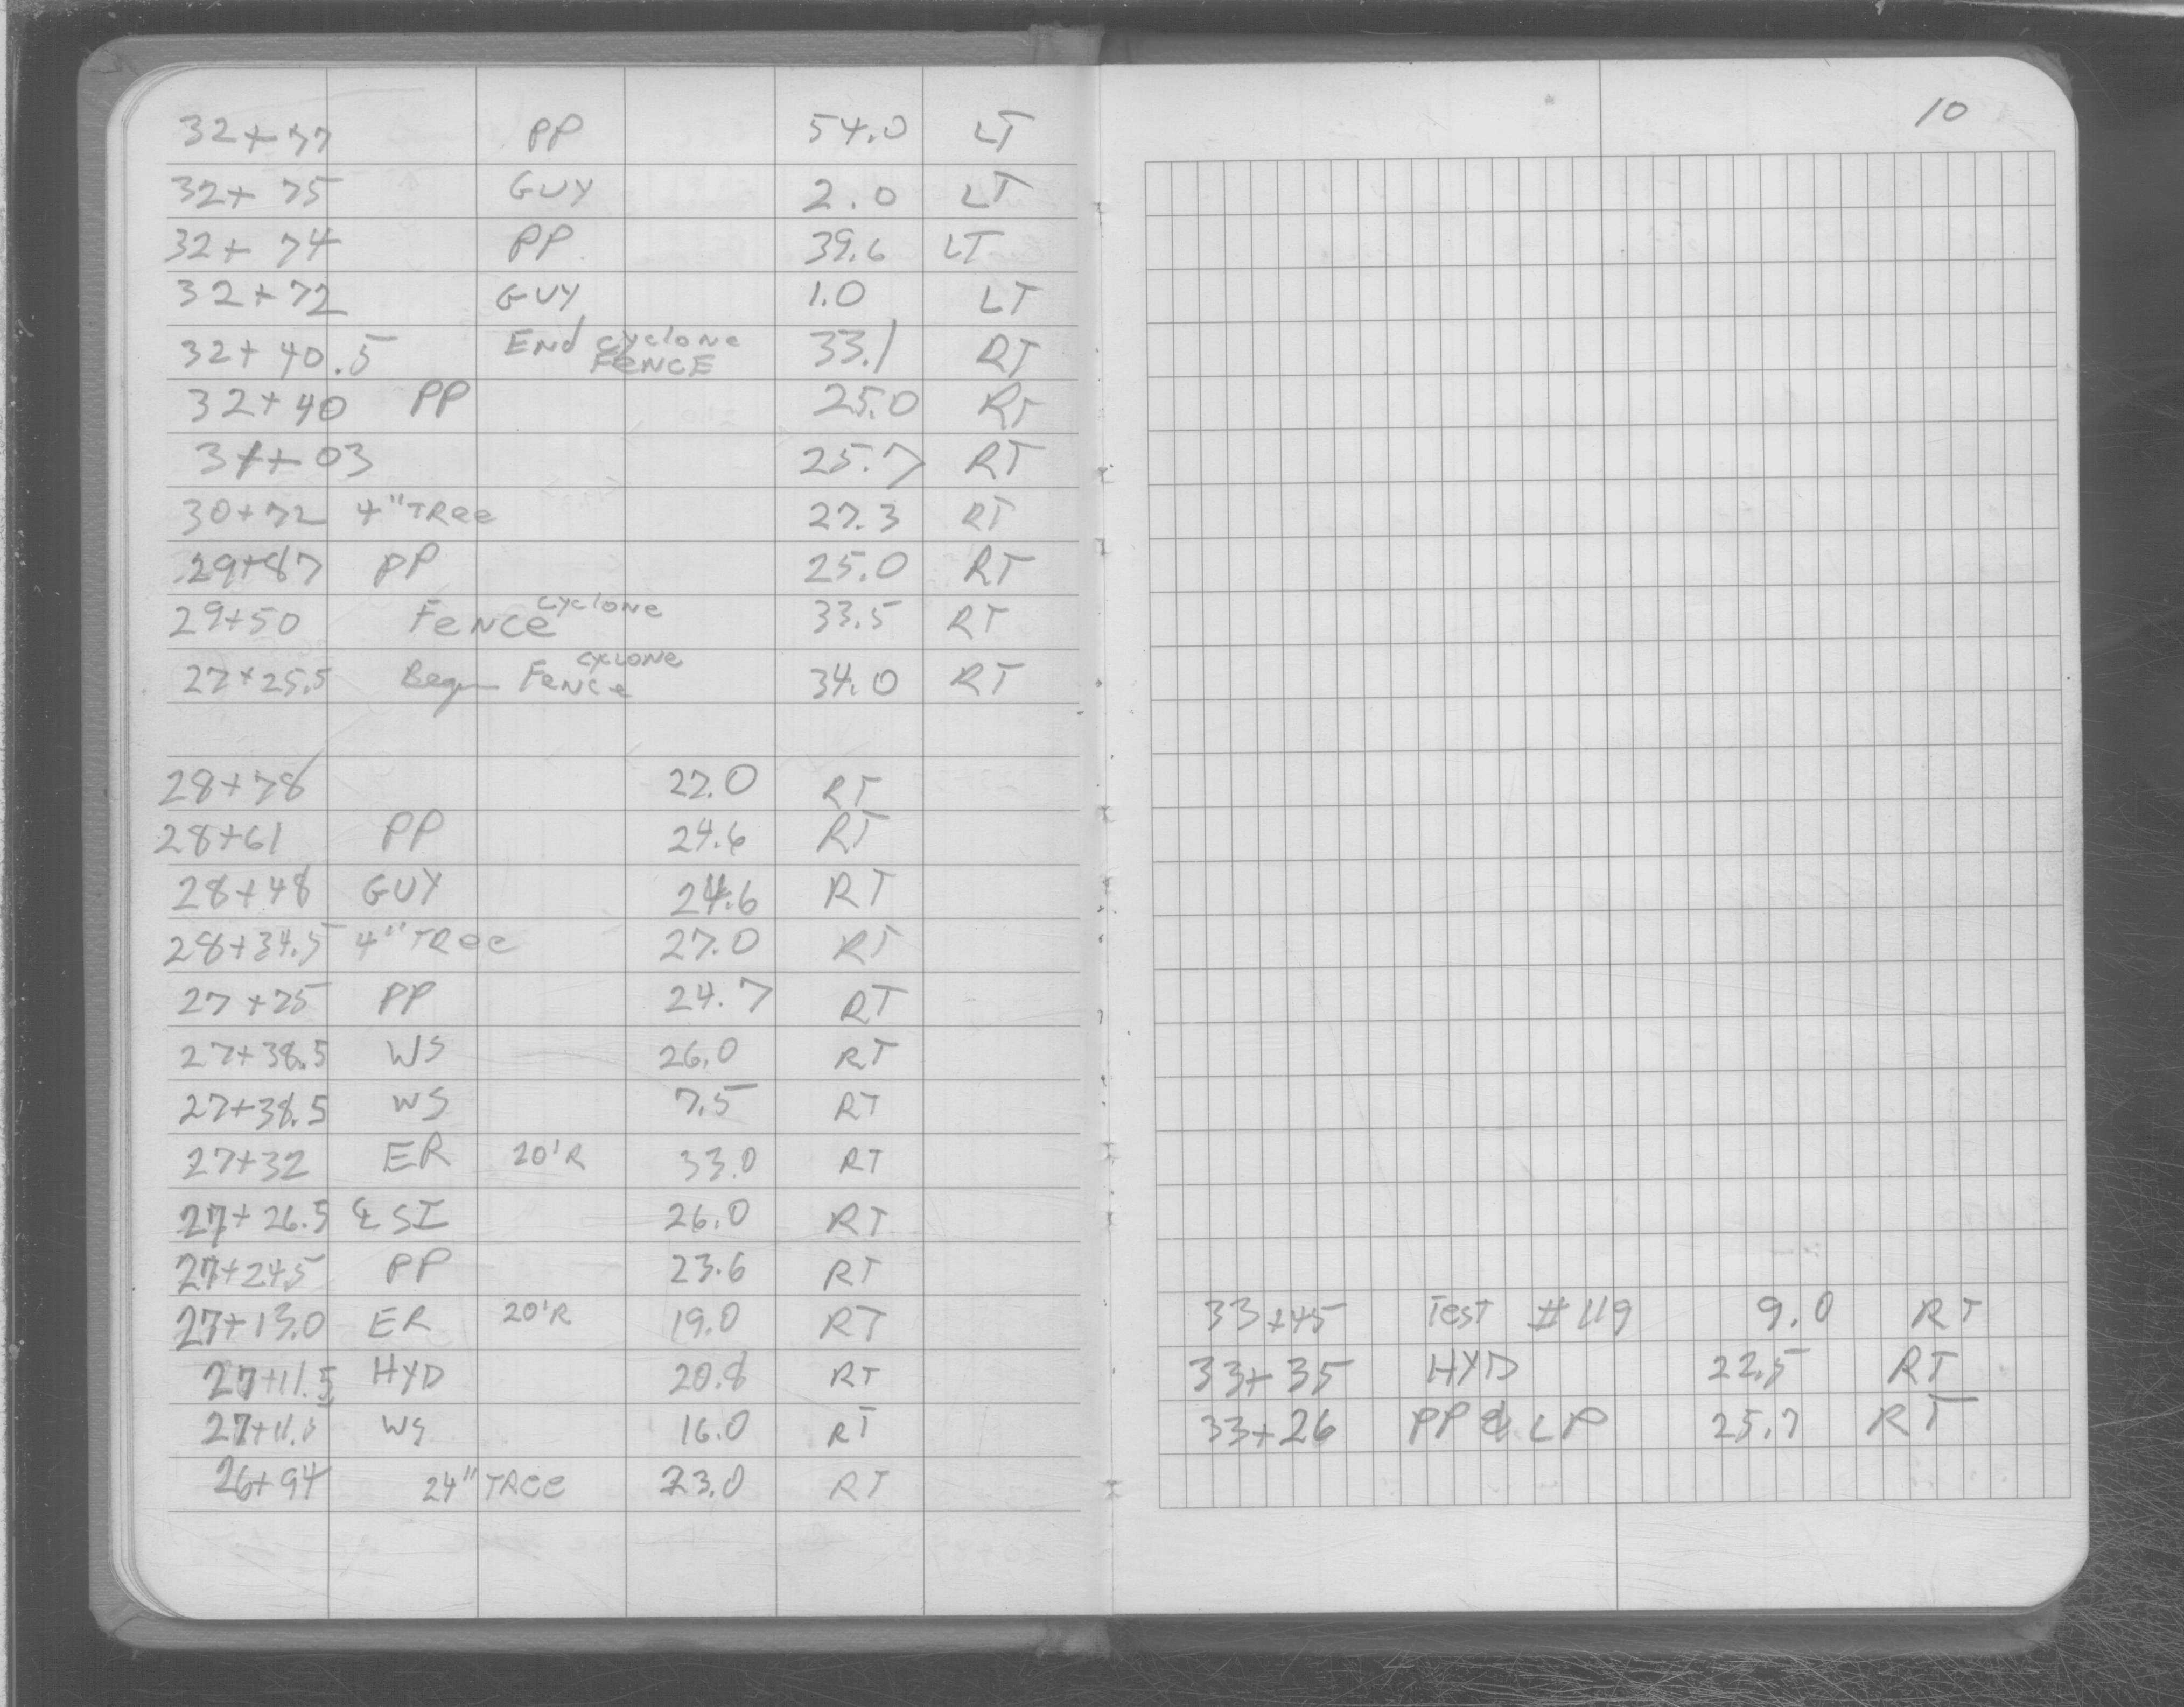 32+77 PP 54.0 LT
32+75 GUY 2.0 LT
32+74 PP 39.6 LT
32+72 GUY 1.0 LT
32+40.5 End cyclone FENCE 33.1 RT
32+40 PP 25.0 RT
31+03 25.7 RT
30+72 4" TRee 27.3 RT
29+87 PP 25.0 RT
29+50 FeNCe cyclone 33.5 RT
27+25.5 Begin FeNCe cyclone 34.0 RT
28+78 27.0 RT
28+61 PP 24.6 RT
28+48 GUY 24.6 RT
28+34.5 4" TRee 27.0 RT
27+75 PP 24.7 RT
27+38.5 WS 26.0 RT
27+38.5 WS 7.5 RT
27+32 ER 20'R 33.0 RT
27+26.5 ℄ SI 26.0 RT
27+24.5 PP 23.6 RT
27+13.0 ER 20'R 19.0 RT
27+11.5 HYD 20.8 RT
WS 16.0 RT
26+94 24" TRee 23.0 RT
10
33+45 TesT #119 9.0 RT
33+35 HYD 22.5 RT
33+26 PP & LP 25.7 RT